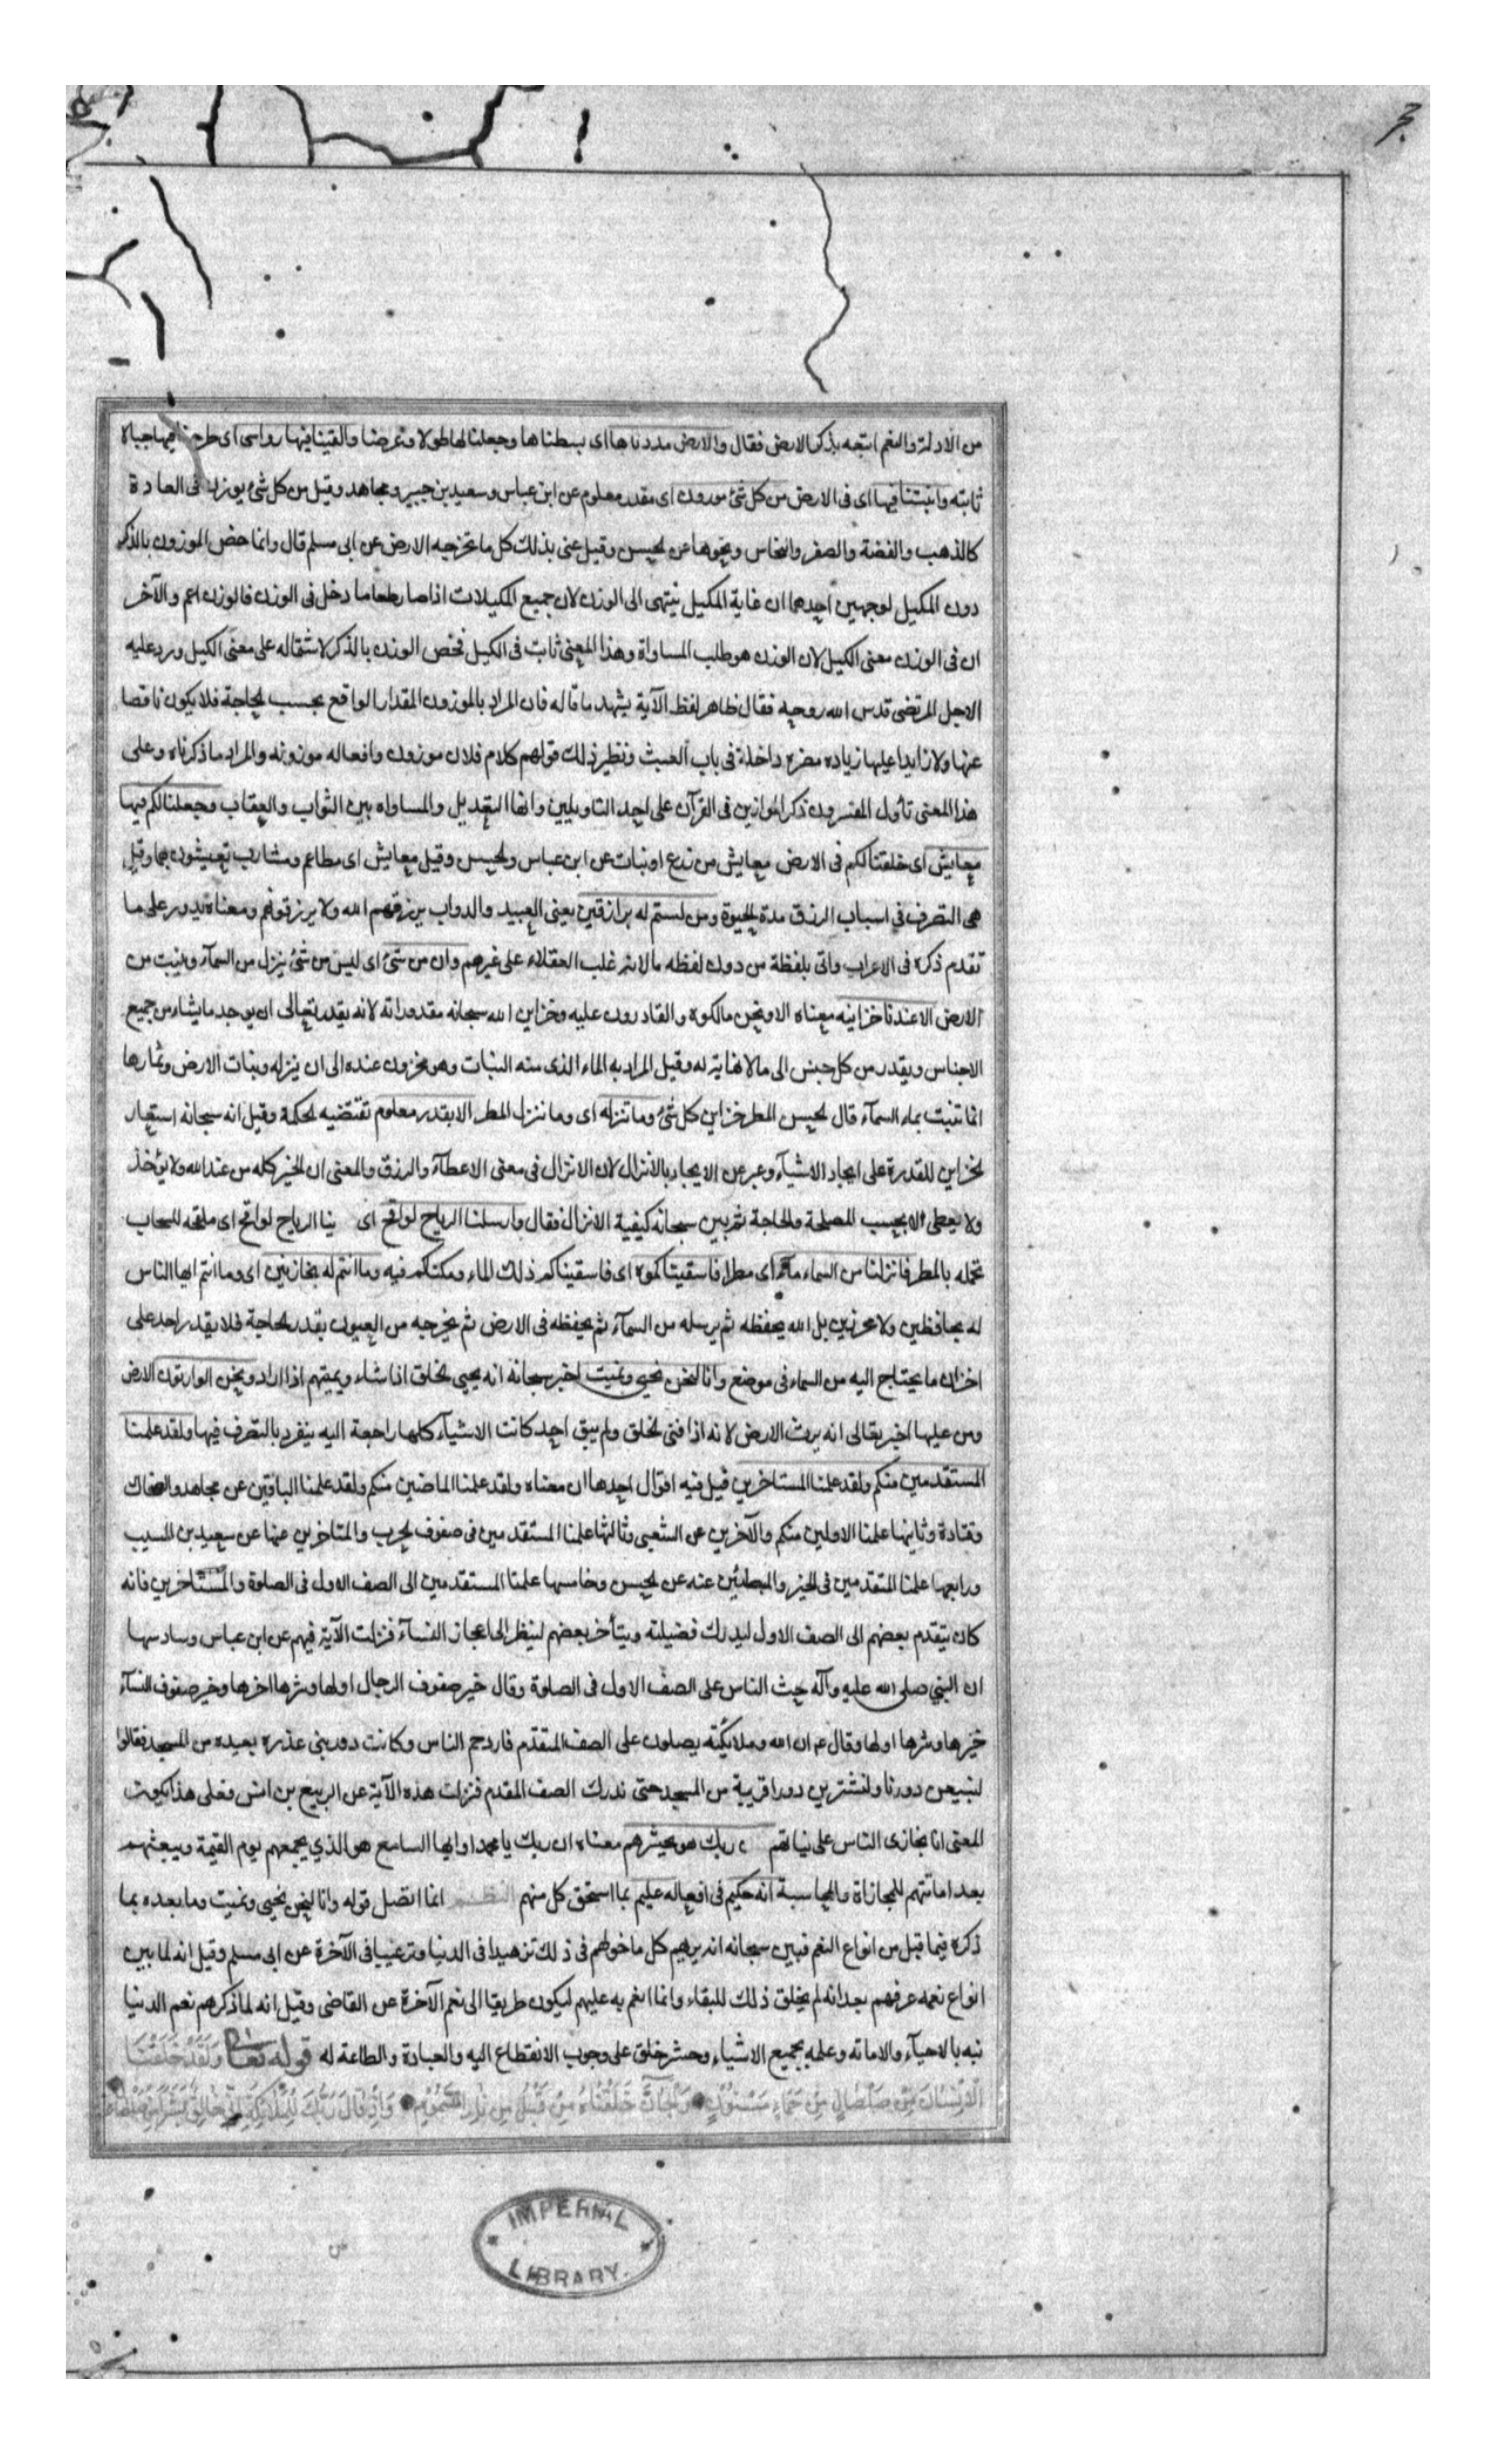 حجر
من الادلة والنعم اتبعه بذكر الارض فقال والارض مددناها اى بسطناها وجعلنا لها طولا وعرضا والقينا فيها رواسى اى طرحنا فيها جبالا
ثابته وانبتنا فيها اى فى الارض من كل شئ موزون اى مقدر معلوم عن ابن عباس وسعيد بن جبير ومجاهد وقيل من كل شئ يوزن فى العادة
كالذهب والفضة والصفر والنحاس ونحوها عن الحسن وقيل عنى بذلك كل ما تخرجه الارض عن ابى مسلم قال وانما خص الموزون بالذكر
دون المكيل لوجهين احدهما ان غاية المكيل ينتهى الى الوزن لان جميع المكيلات اذا صار طعاما دخل فى الوزن فالوزن اعم والآخر
ان فى الوزن معنى الكيل لان الوزن هو طلب المساواة وهذا المعنى ثابت فى الكيل فخص الوزن بالذكر لاشتماله على معنى الكيل ورد عليه
الاجل المرتضى قدس الله روحه فقال ظاهر لفظ الآية يشهد ما قاله فان المراد بالموزون المقدار الواقع بحسب الحاجة فلا يكون ناقصا
عنها ولا زايدا عليها زياده مضره داخلة فى باب العبث ونظير ذلك قولهم كلام فلان موزون وافعاله موزونه والمراد ما ذكرناه وعلى
هذا المعنى تأول المفسرون ذكر الموازين فى القرآن على احد التاويلين وانها التعديل والمساواه بين الثواب والعقاب وجعلنا لكم فيها
معايش اى خلقنا لكم فى الارض معايش من زرع او نبات عن ابن عباس والحسن وقيل معايش اى مطاعم ومشارب تعيشون بها وقيل
هى التصرف فى اسباب الرزق مدة الحيوة ومن لستم له برازقين يعنى العبيد والدواب يرزقهم الله ولا يرزقونهم ومعناه يدور على ما
تقدم ذكره فى الاعراب واتى بلفظة من دون لفظه ما لانه غلب العقلاء على غيرهم وان من شئ اى ليس من شئ ينزل من السمآء وينبت من
الارض الا عندنا خزاينه معناه الا ونحن مالكوه والقادرون عليه وخزاين الله سبحانه مقدوراته لانه يقدر تعالى ان يوجد ما يشاء من جميع
الاجناس ويقدر من كل جنس الى ما لا نهاية له وقيل المراد به الماء الذى منه النبات وهو مخزون عنده الى ان ينزله ونبات الارض وثمارها
انما تنبت بماء السمآء قال الحسن المطر خزاين كل شئ وما ننزله اى وما ننزل المطر الا بقدر معلوم تقتضيه الحكمة وقيل انه سبحانه استعار
الخزاين للقدرة على ايجاد الاشيآء وعبر عن الايجاد بالانزال لان الانزال فى معنى الاعطآء والرزق والمعنى ان الخير كله من عند الله ولا يؤخذ
ولا يعطى الا بحسب المصلحة والحاجة ثم بين سبحانه كيفية الانزال فقال وارسلنا الرياح لواقح اى ينا الرياح لواقح اى ملقحه للسحاب
تحمله بالمطر فانزلنا من السماء مآء اى مطرا فاسقيناكموه اى فاسقيناكم ذلك الماء ومكناكم فيه وما انتم له بخازنين اى وما انتم ايها الناس
له بحافظين ولا محرزين بل الله يحفظه ثم يرسله من السمآء ثم يحفظه فى الارض ثم يخرجه من العيون بقدر الحاجة فلا يقدر احد على
اخزان ما يحتاج اليه من السماء فى موضع وانا لنحن نحيى ونميت اخبر سبحانه انه يحيى الخلق اذا شاء ويميتهم اذا اراد ونحن الوارثون الارض
ومن عليها اخبر تعالى انه يرث الارض لانه اذا فنى الخلق ولم يبق احد كانت الاشيآء كلها راجعة اليه ينفرد بالتصرف فيها ولقد علمنا
المستقدمين منكم ولقد علمنا المستاخرين قيل فيه اقوال احدها ان معناه ولقد علمنا الماضين منكم ولقد علمنا الباقين عن مجاهد والضحاك
وقتادة وثانيها علمنا الاولين منكم والآخرين عن الشعبى وثالثها علمنا المستقدمين فى صفوف الحرب والمتاخرين عنها عن سعيد بن المسيب
ورابعها علمنا المتقدمين فى الخير والمبطئين عنه عن الحسن وخامسها علمنا المستقدمين الى الصف الاول فى الصلوة والمستاخرين فانه
كان يتقدم بعضهم الى الصف الاول ليدرك فضيلته ويتأخر بعضهم لينظر الى اعجاز النسآء فنزلت الآية فيهم عن ابن عباس وسادسها
ان النبى صلى الله عليه وآله حث الناس على الصف الاول فى الصلوة وقال خير صفوف الرجال اولها وشرها اخرها وخير صفوف النسآء
اخرها وشرها اولها وقال عم ان الله وملايكته يصلون على الصف المتقدم فازدحم الناس وكانت دور بنى عذره بعيده من المسجد فقالوا
لنبيعن دورنا ولنشترين دورا قريبة من المسجد حتى ندرك الصف المقدم فنزلت هذه الآية عن الربيع بن انس فعلى هذا يكون
المعنى انا نجازى الناس على نياتهم ن ربك هو يحشرهم معناه ان ربك يا محمد او ايها السامع هو الذي يجمعهم يوم القيمة ويبعثهم
بعد اماتتهم للمجازاة والمحاسبة انه حكيم فى افعاله عليم بما استحق كل منهم النظـم انما اتصل قوله وانا لنحن نحيى ونميت وما بعده بما
ذكره فيما قبل من انواع النعم فبين سبحانه انه يرثهم كل ما خولهم فى ذلك تزهيدا فى الدنيا وترغيبا فى الآخرة عن ابى مسلم وقيل انه لما بين
انواع نعمه عرفهم بعد انه لم يخلق ذلك للبقاء وانما انعم به عليهم ليكون طريقا الى نعم الآخرة عن القاضى وقيل انه لما ذكرهم نعم الدنيا
نبه بالاحيآء والاماته وعلمه بجميع الاشياء وحشر الخلق على وجوب الانقطاع اليه والعبادة والطاعة له قوله تعالى وَلَقَدْ خَلَقْنَا
الْاِنْسَانَ مِنْ صَلْصَالٍ مِنْ حَمَاءٍ مَسْنُوْنٍ وَالْجَآنَّ خَلَقْنَاهُ مِنْ قَبْلُ مِنْ نَارِ السَّمُوْمِ وَاِذْ قَالَ رَبُّكَ لِلْمَلَائِكَةِ اِنِّى خَالِقٌ بَشَرًا مِنْ صَلْصَالٍ
IMPERIAL
LIBRARY.